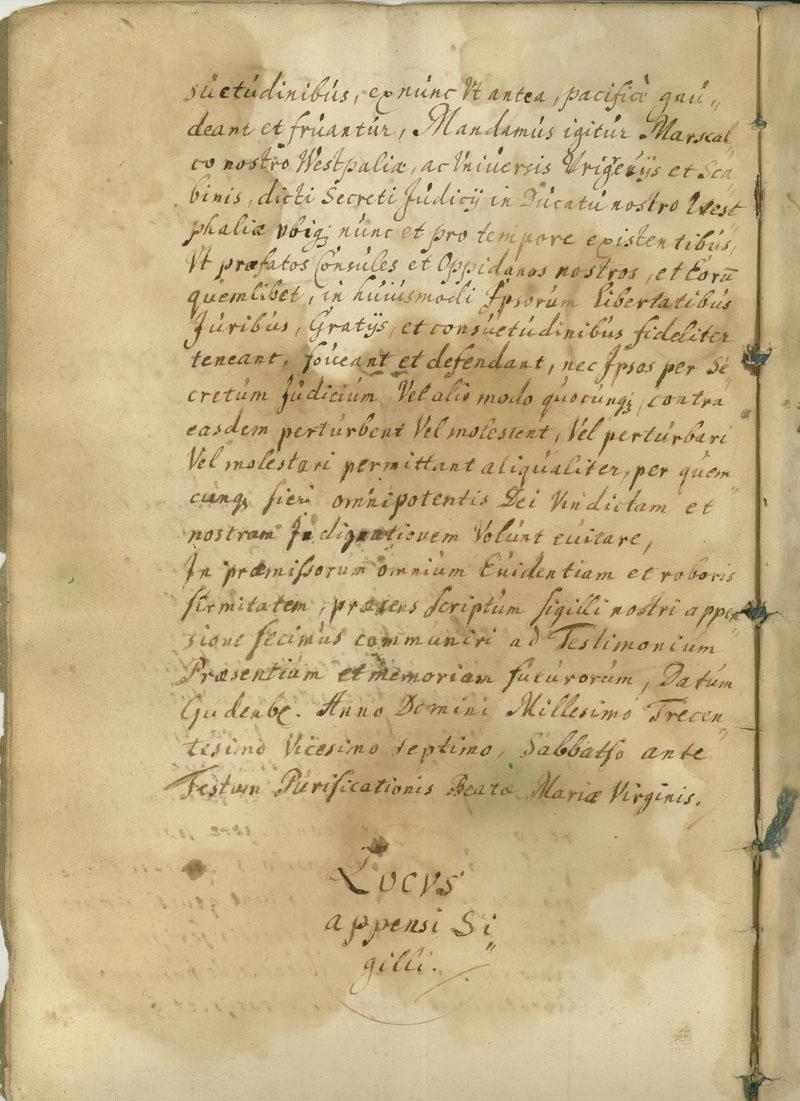 suetudinibus, ex nunc Vt antea, pacificè gau„
deant et fruantur, Mandamus igitur Marscal
co nostro Westphaliæ, ac Vniversis Vrigeuijs et Sca
binis, dicti Secreti Judicij in Ducatu nostro West
phaliæ vbiqȝ nunc et pro tempore existentibus,
Vt præfatos Consules et Oppidanos nostros, et Eorū
quemlibet, in huiusmodi Ipsorum Libertatibus
Juribus, Gratijs, et consuetudinibus fideliter
teneant, foueant et defendant, nec Ipsos per Se
cretum Judicium Vel alio modo quocunqȝ, contra
easdem perturbent Vel molestent, Vel perturbari
Vel molestari permittant aliqualiter, per quem
cunqȝ fieri omnipotentis Dei Vindictam et
nostram Indignationem Volunt euitare,
In præmissorum omnium Euidentiam et roboris
firmitatem, præsens scriptum sigilli nostri appen
sione fecimus communiri ad Testimonium
Præsentium et memoriam futurorum, Datum
Gudenbe. Anno Domini Millesimo Trecen„
tesimo Vicesimo septimo, Sabbatho ante
Festum Purificationis Beatæ Mariæ Virginis.
Locvs
appensi Si„
gilli.